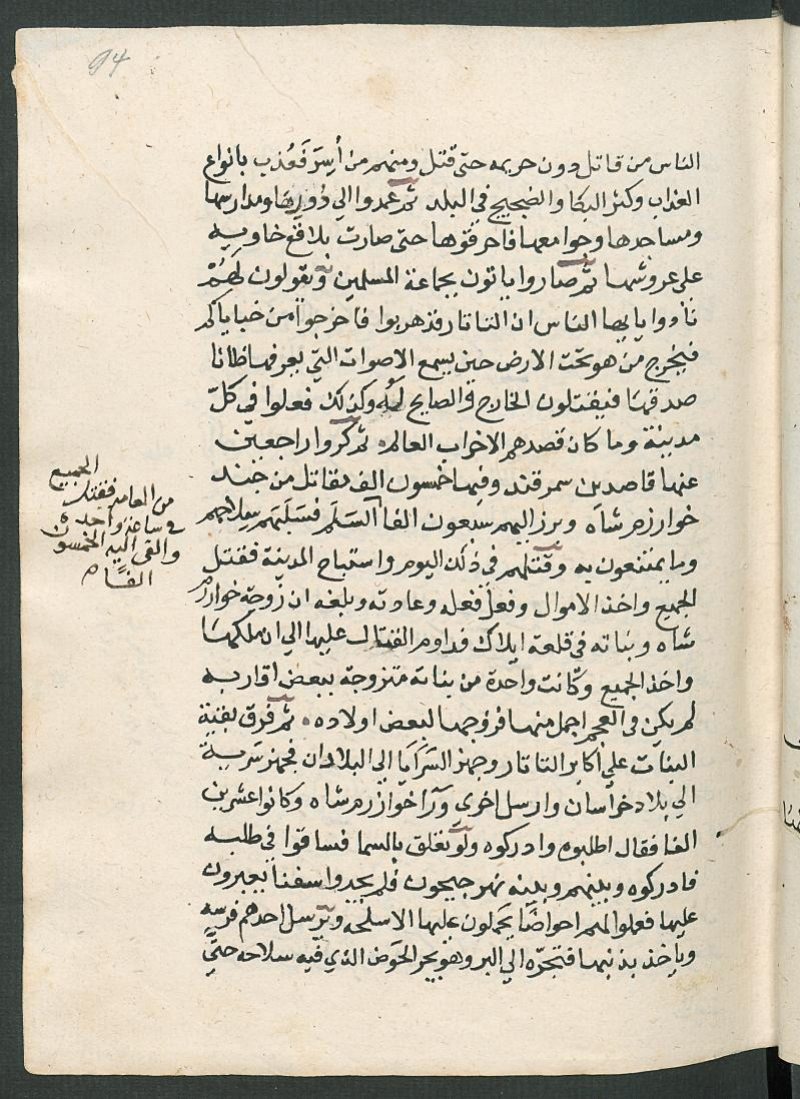 94
الناس من قاتل دون حريمه حتى قتل ومنهم من أسِرَ فَعُذب بانواع
العذاب وكثر البكا والضجيج في البلد ثم عمدوا الي دُورِهَا ومدارسها
ومساجدها وجوامعها فاحرقوها حتى صارت بلاقع خاويه
على عروشها ثم صاروا ياتون بجماعة المسلمين ويقولون لَهُمْ
نادوا يايها الناس ان التاتار قد هربوا فاخرجوا من خباياكم
فيخرج من هو تحت الارض حين يسمع الاصوات التي يعرفها ظانا
صدقها فيقتلون الخارج والصايح لَهُ وكذلك فعلوا في كلّ
مدينة وما كان قصدهم الا خراب العالم ثم كروا راجعين
عنها قاصدين سمرقند وفيها خمسون الف مقاتل من جند
خوارزم شاه وبرز اليهم سبعون الفا السَلَم فسَلَبَهم سلاحهم
وما يمتنعون به وقتلهم في ذلك اليوم واستباح المدينة فقتل
الجميع واخذ الاموال وفعل فعله وعادته وبلغه ان زوجة خوارزم
شاه وبناته في قلعة ايلاك فداوم القتال عليها الي ان ملكها
واخذ الجميع وكانت واحدة من بناته متزوجة ببعض اقاربه
لم يكن في العجم اجمل منها فزوجها لبعض اولاده ثم فرق بقية
البنات علي أكابر التاتار وجهز السَرَايَا الي البلادان فجهز سَرية
الي بلاد خراسان وارسل اخري ورآ خوازرم شاه وكانوا عشرين
الفا فقال اطلبوه وادركوه ولو تعلق بالسما فساقوا في طلبه
فادركوه وبينهم وبينه نهر جيحون فلم يجدوا سفنا يعبرون
عليها فعملوا لهم احواضا يَحملون عليها الاسلحه ويرسل احدهم فرسه
وياخذ بذنبها فتجرّه الي البر وهو يجر الحَوض الذي فيه سلاحه حتيَّ
الجميع
من العامه فقتل
في ساعة واحدة
والقي اليه الخمسون
الفًا